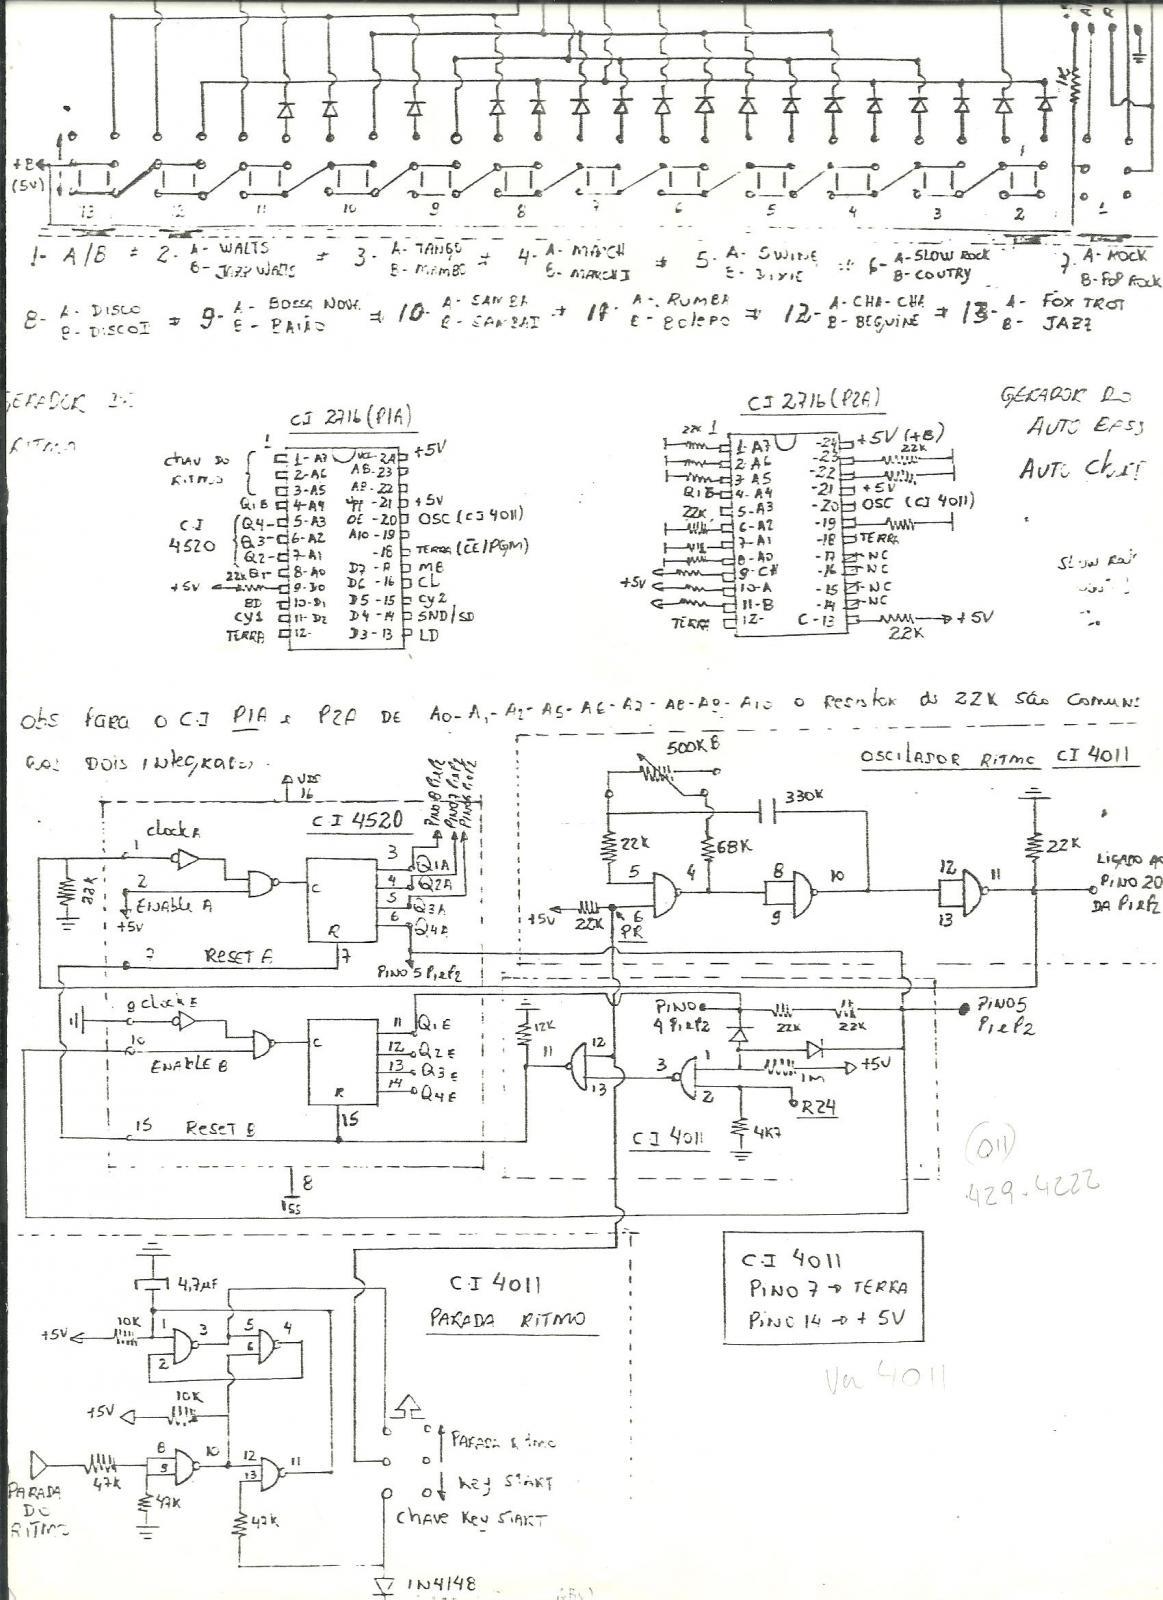 +B
(5V)
1K
13 12 11 10 9 8 7 6 5 4 3 2 1
1
1- A/B = 2- A- WALTS = 3- A- TANGO = 4- A- MARCH = 5- A- SWING = 6- A-SLOW ROCK 7- A-ROCK
B- JAZZ WALTS B- MAMBO B-COUTRY B-POP ROCK
8- A- DISCO = 9- A- BOSSA NOVA = 10- A- SAMBA = 11- A-. RUMBA = 12- A-CHA-CHA = 13- A- FOX TROT
B- DISCO I B- BAIÃO B- BOLERO B- BEGUINE B- JAZZ
GERADOR DE
RITMO
CI 2716(P1A)
1
CHAV DO
RITMO
1-A7
2-A6
3-A5
Q1B 4-A4
CI
4520
Q4 5-A3
Q3 6-A2
Q2 7-A1
8-A0
+5V 22K 9-D0
BD 10-D1
CY1 11-D2
TERRA 12-
VCC-24 +5V
A8-23
A9-22
-21 +5V
OE-20 OSC (CI 4011)
A10-19
-18 TERRA (CE/PGM)
MB
D6-16 CL
D5-15 CY2
D4-14 SND/SD
D3-13 LD
CI 2716(P2A)
22K 1
1-A7
2-A6
3-A5
Q1B 4-A4
22K 5-A3
6-A2
7-A1
8-A0
9-CH
+5V 10-A
11-B
TERRA 12-
-24 +5V (+B)
-23 22K
-22
-21 +5V
-20 OSC (CI 4011)
-19
-18 TERRA
-17 NC
-16 NC
-15 NC
-14 NC
C-13 +5V
22K
GERADOR DO
AUTO BASS
AUTO
OBS PARA O C.I P1A e P2A DE A0-A1-A2-A5-A6-A7-A8-A9-A10 O Resistor de 22K São Comuns
aos DOIS INTEGRADOS.
OSCILADOR RITMO CI 4011
500KB
330K
22K
68K
5
6
4
8
9
10
12
13
11
22K
+5V
22K
PR
LIGADO AO
PINO 20
DA P1eP2
VDD
16
CI 4520
PINO 8 P1eP2
PINO 7 P1eP2
PINO 6 P1eP2
1 CLOCK A
22K
2
ENABLE A
+5V
7 RESET A
C
R
7
3 Q1A
4 Q2A
5 Q3A
6 Q4A
PINO 5 P1eP2
9 CLOCK B
10
ENABLE B
15 RESET B
C
R
15
11 Q1B
12 Q2B
13 Q3B
14 Q4B
8
VSS
12K
11
12
13
3
1
2
PINO
4 P1eP2
22K
22K
1M
+5V
R24
4K7
CI 4011
PINO5
P1eP2
(011)
429-4222
CI 4011
PINO 7 → TERRA
PINO 14 → + 5V
4011
CI 4011
PARADA RITMO
4,7µF
10K
+5V
1
2
3
5
6
4
10K
+5V
8
9
10
12
13
11
47K
47K
47K
PARADA
DO
RITMO
PARADA RITMO
KEY START
CHAVE KEY START
1N4148